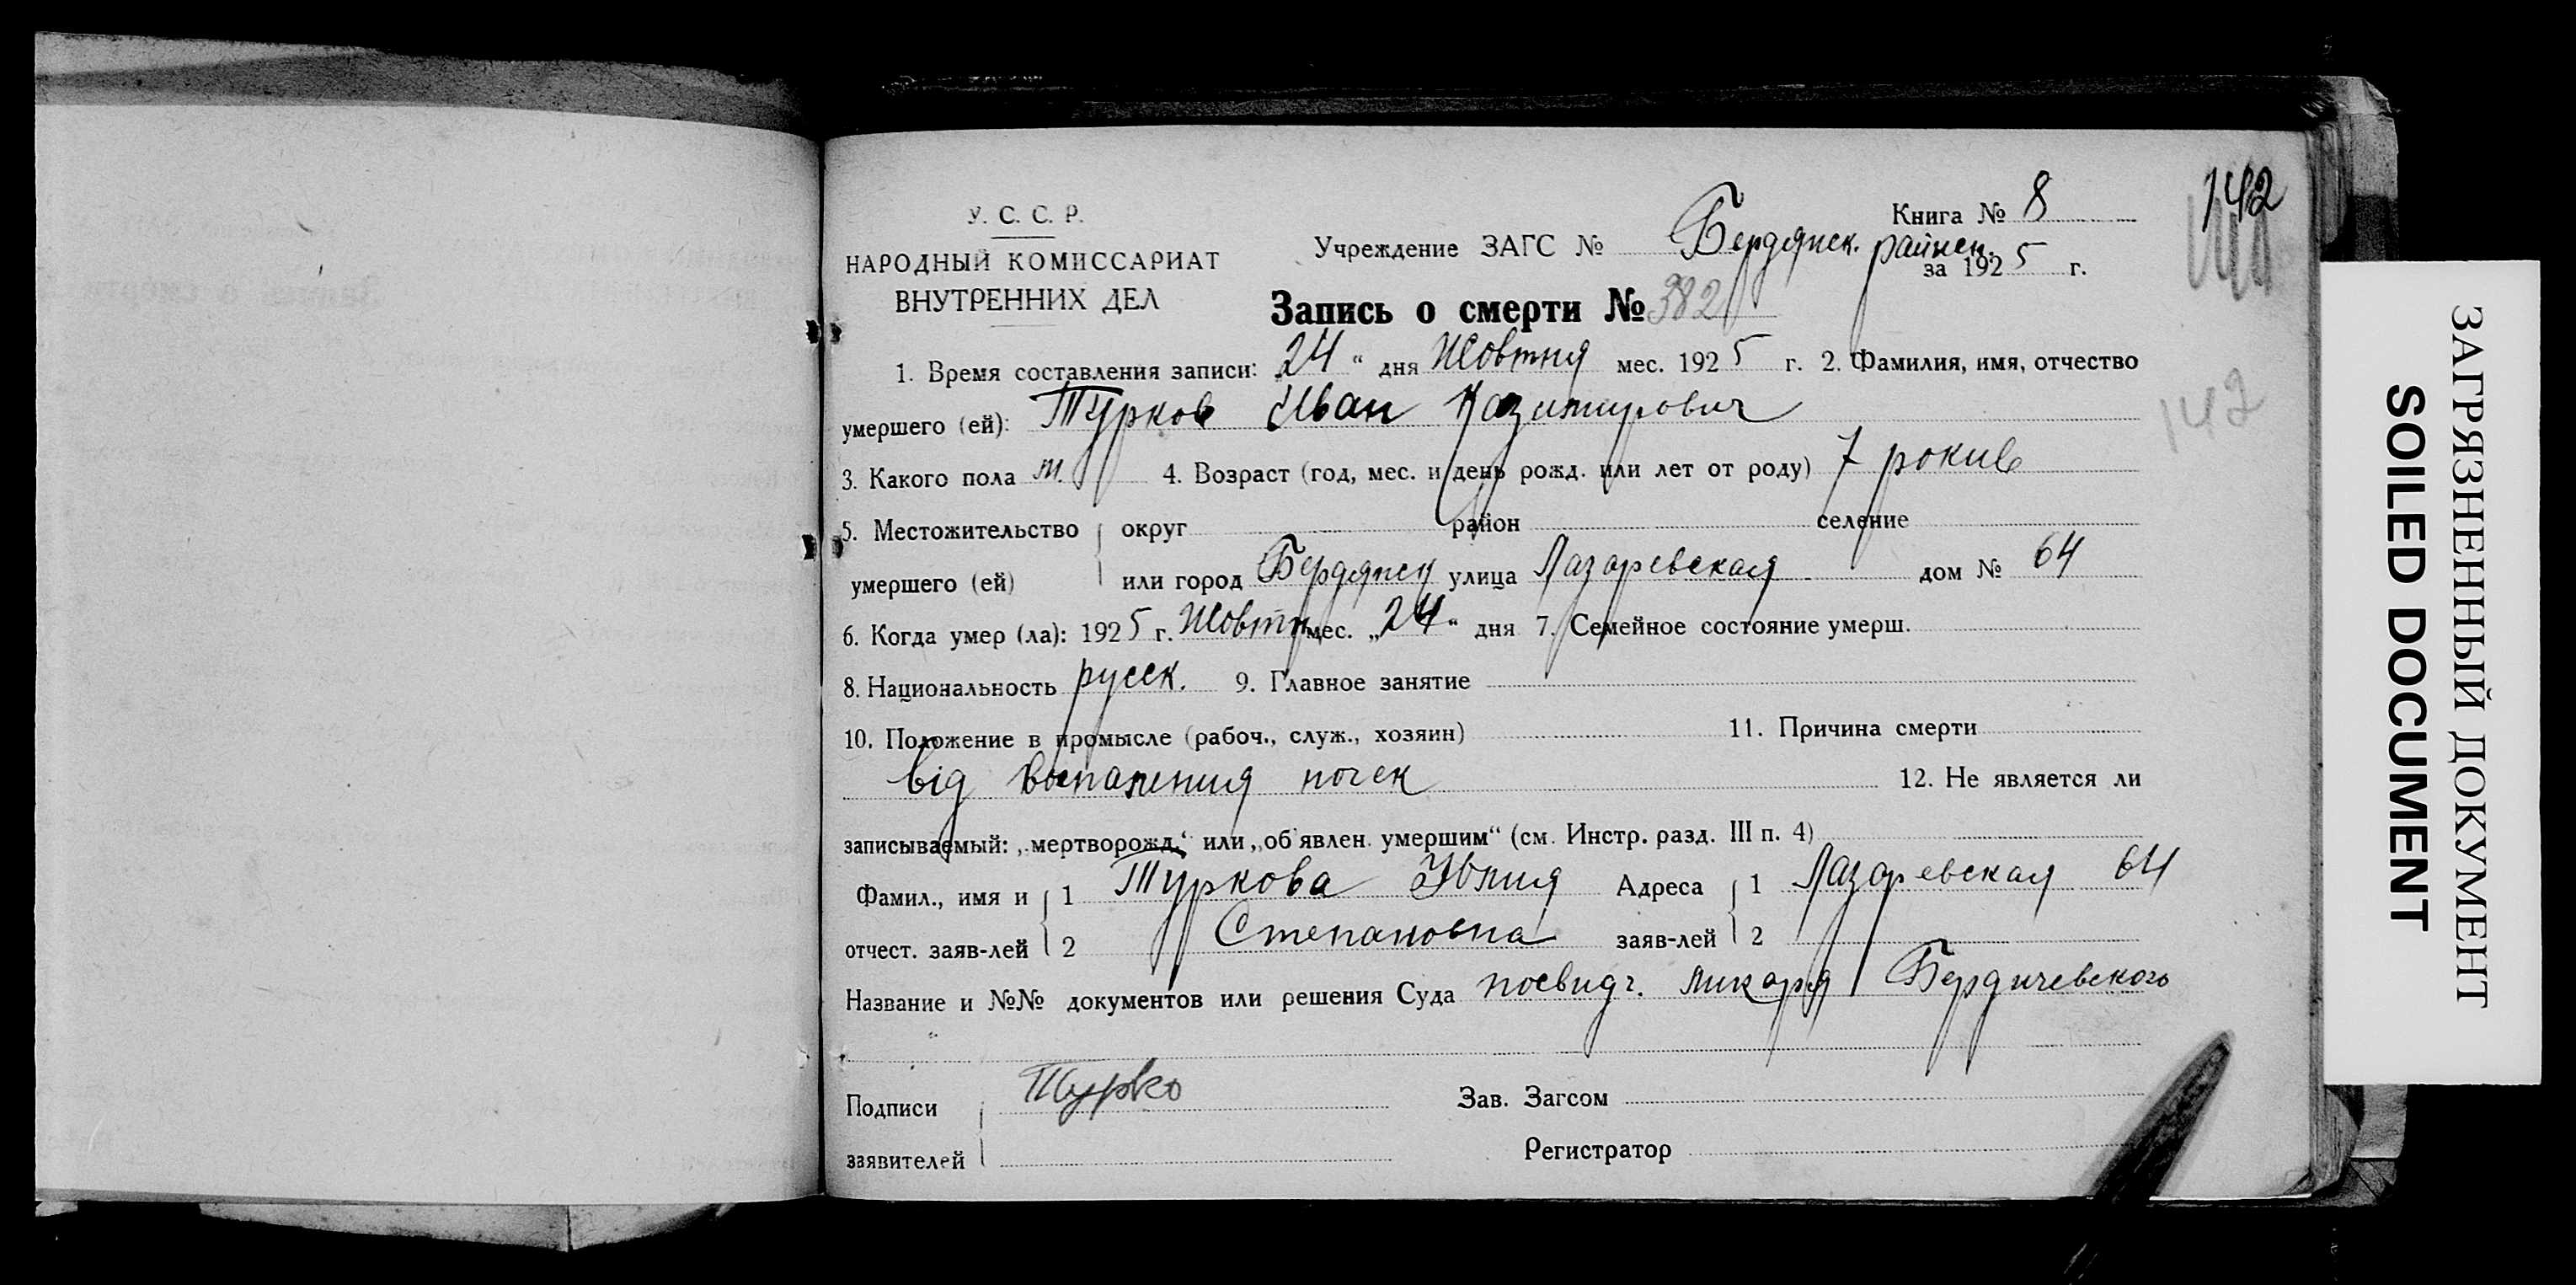 142
У. С. С. Р.
НАРОДНЫЙ КОМИССАРИАТ
ВНУТРЕННИХ ДЕЛ
Книга № 8
Учреждение ЗАГС № Бердянск. райисп.
за 1925 г.
Запись о смерти № 382
1. Время составления записи: 24 " дня Жовтня мес. 1925 г. 2. Фамилия, имя, отчество
умершего (ей): Турков Иван Казимирович
3. Какого пола м. 4. Возраст (год, мес. и день рожд. или лет от роду) 7 рокив
5. Местожительство округ район селение
умершего (ей) или город Бердянск улица Лазаревская дом № 64
6. Когда умер (ла): 1925 г. Жовтн мес. „24" дня 7. Семейное состояние умерш.
8. Национальность русск. 9. Главное занятие
10. Положение в промысле (рабоч., служ., хозяин) 11. Причина смерти
від воспаления почек 12. Не является ли
записываемый: „мертворожд." или „об'явлен. умершим" (см. Инстр. разд. III п. 4)
Фамил., имя и 1 Туркова Юлия Адреса 1 Лазаревская 64
отчест. заяв-лей 2 Степановна заяв-лей 2
Название и №№ документов или решения Суда посвидч. ликаря Бердичевского
Подписи Турко Зав. Загсом
заявителей Регистратор
142
ЗАГРЯЗНЕННЫЙ ДОКУМЕНТ
SOILED DOCUMENT